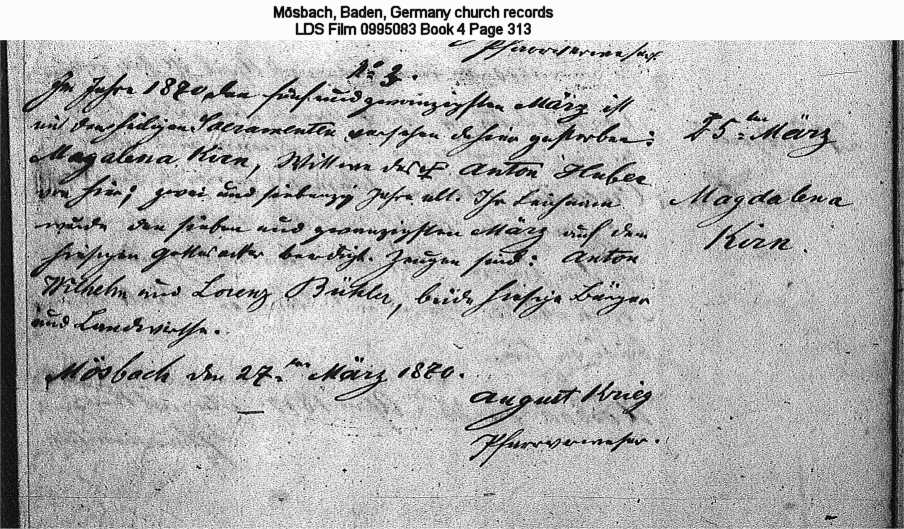 Mösbach, Baden, Germany church records
LDS Film 0995083 Book 4 Page 313
Pfarrverweser.
No 3.
Im Jahre 1870, den fünf und zwanzigsten März ist
mit den heiligen Sacramenten versehen dahier gestorben:
Magdalena Kirn, Wittwe des † Anton Huber
von hier; zwei und siebenzig Jahre alt. Ihr Leichnam
wurde den sieben und zwanzigsten März auf dem
hiesigen Gottesacker beerdigt. Zeugen sind: Anton
Wilhelm und Lorenz Bühler, beide hiesige Bürger
und Landwirthe.
Mösbach den 27.ten März 1870.
August Krieg
Pfarrverweser.
25.ten März
Magdalena
Kirn.